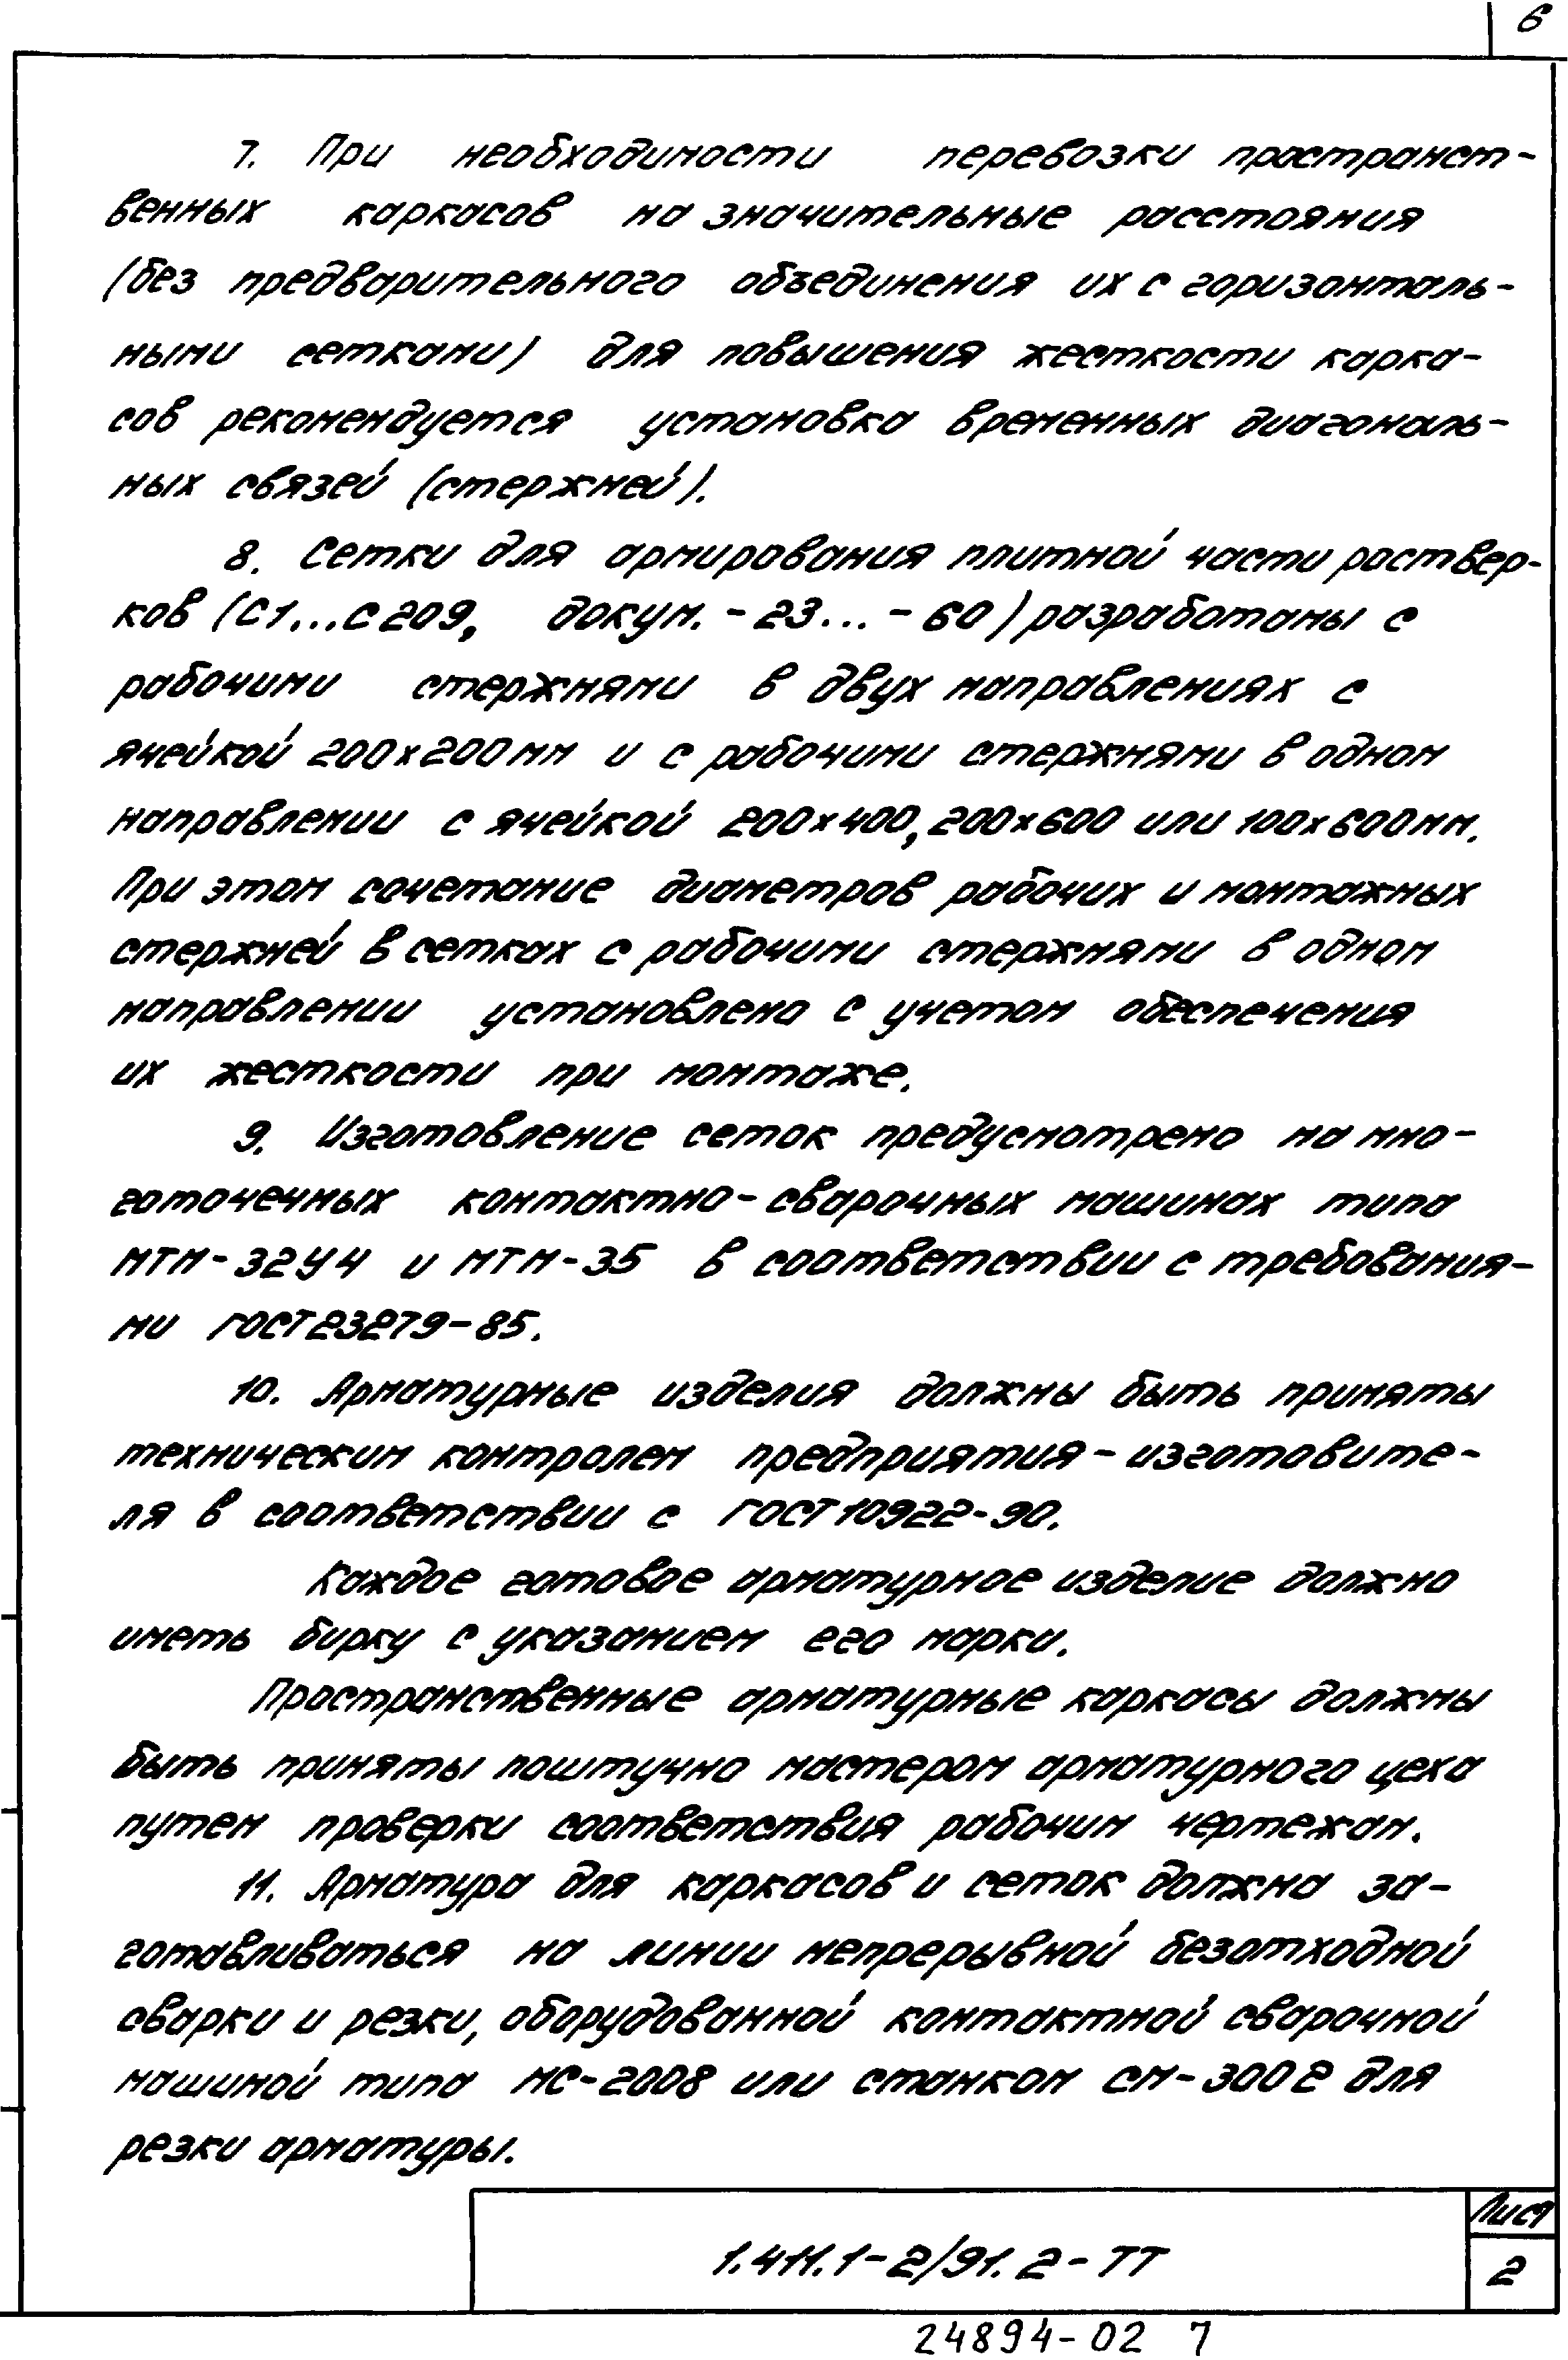 6
7. При необходимости перевозки пространст-
венных каркасов на значительные расстояния
(без предварительного объединения их с горизонталь-
ными сетками) для повышения жесткости карка-
сов рекомендуется установка временных диагональ-
ных связей (стержней).
8. Сетки для армирования плитной части роствер-
ков (С1...С209, докум. -23... -60) разработаны с
рабочими стержнями в двух направлениях с
ячейкой 200х200мм и с рабочими стержнями в одном
направлении с ячейкой 200х400, 200х600 или 100х600мм.
При этом сочетание диаметров рабочих и монтажных
стержней в сетках с рабочими стержнями в одном
направлении установлено с учетом обеспечения
их жесткости при монтаже.
9. Изготовление сеток предусмотрено на мно-
готочечных контактно-сварочных машинах типа
МТМ-32У4 и МТМ-35 в соответствии с требования-
ми ГОСТ 23279-85.
10. Арматурные изделия должны быть приняты
техническим контролем предприятия-изготовите-
ля в соответствии с ГОСТ 10922-90.
Каждое готовое арматурное изделие должно
иметь бирку с указанием его марки.
Пространственные арматурные каркасы должны
быть приняты поштучно мастером арматурного цеха
путем проверки соответствия рабочим чертежам.
11. Арматура для каркасов и сеток должна за-
готавливаться на линии непрерывной безотходной
сварки и резки, оборудованной контактной сварочной
машиной типа МС-2008 или станком СМ-3002 для
резки арматуры.
1.411.1-2/91.2-ТТ
Лист
2
24894-02 7